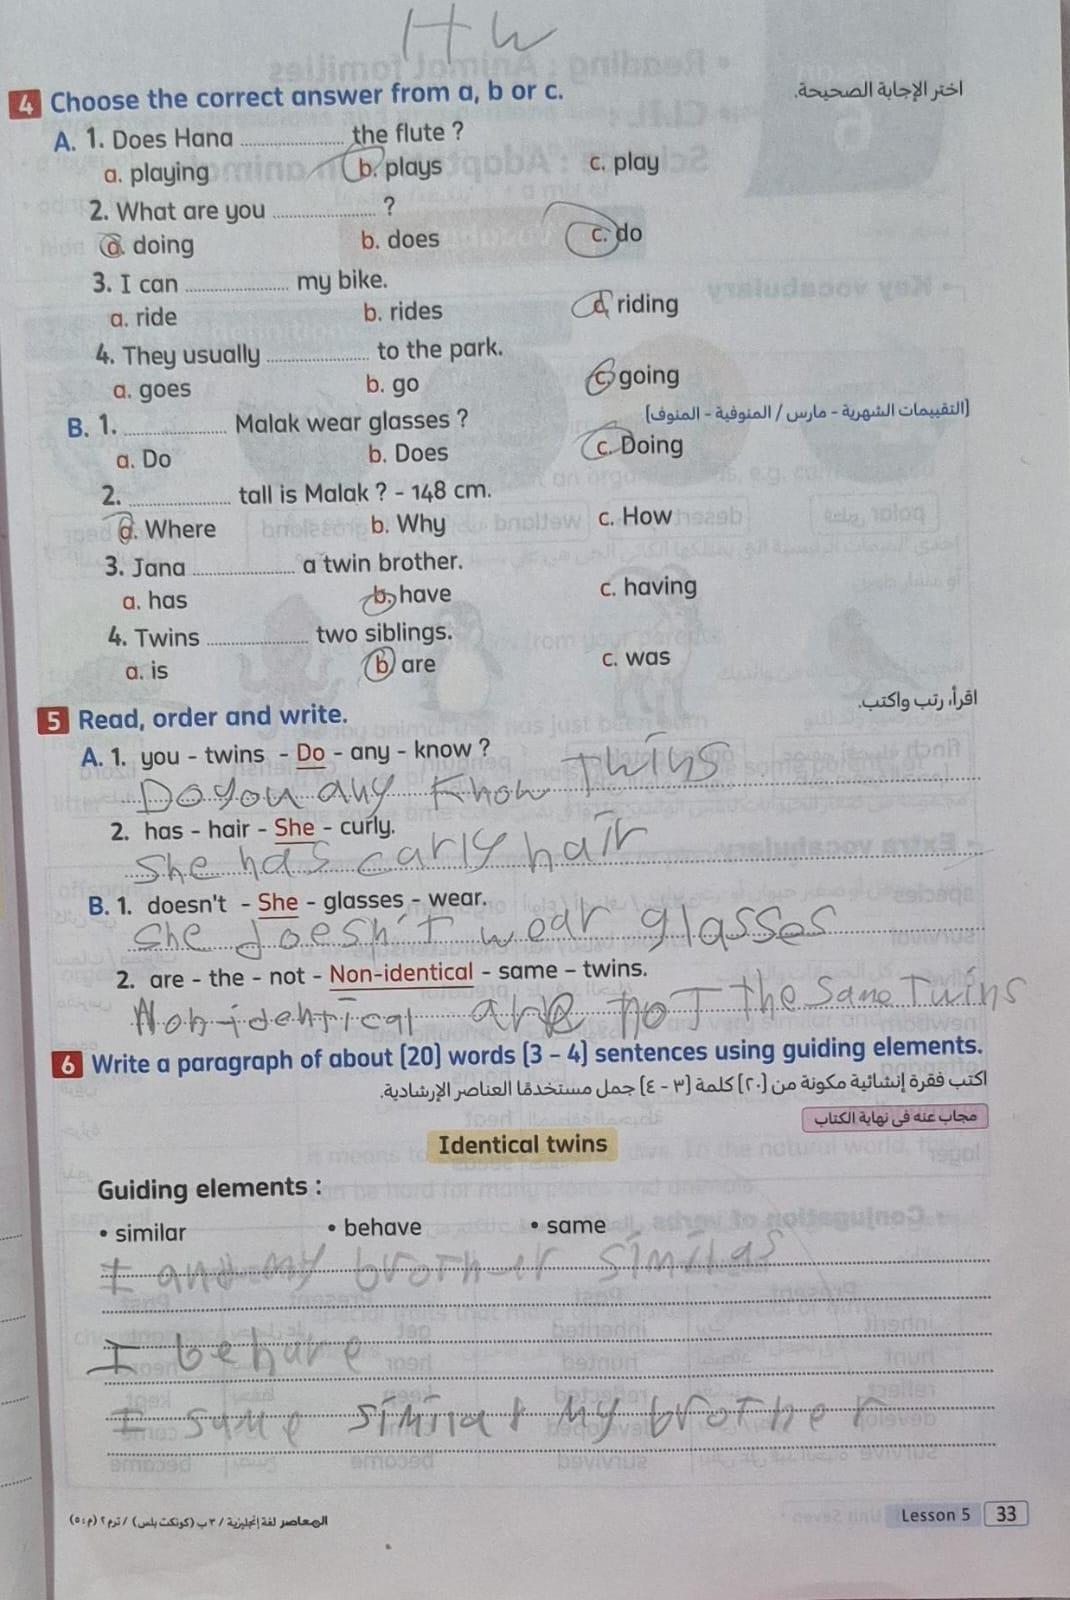 HW
4 Choose the correct answer from a, b or c. اختر الإجابة الصحيحة.
A. 1. Does Hana .................... the flute ?
a. playing b. plays c. play
2. What are you .................... ?
a. doing b. does c. do
3. I can .................... my bike.
a. ride b. rides c. riding
4. They usually .................... to the park.
a. goes b. go c. going
(التقييمات الشهرية - مارس / المنوفية - المنوف)
B. 1. .................... Malak wear glasses ?
a. Do b. Does c. Doing
2. .................... tall is Malak ? - 148 cm.
a. Where b. Why c. How
3. Jana .................... a twin brother.
a. has b. have c. having
4. Twins .................... two siblings.
a. is b. are c. was
5 Read, order and write. اقرأ، رتب واكتب.
A. 1. you - twins - Do - any - know ?
Do you any know twins
2. has - hair - She - curly.
She has carly hair
B. 1. doesn't - She - glasses - wear.
She doesn't wear glasses
2. are - the - not - Non-identical - same - twins.
Non-identical are not the same twins
6 Write a paragraph of about (20) words (3 - 4) sentences using guiding elements.
اكتب فقرة إنشائية مكونة من (٢٠) كلمة (٣ - ٤) جمل مستخدمًا العناصر الإرشادية.
مجاب عنه فى نهاية الكتاب
Identical twins
Guiding elements :
• similar • behave • same
I and my brother similas
I behave
I same similar my brother
المعاصر لغة إنجليزية / ٣ ب (كونكت بلس) / ترم ٢ (م : ٥)
Lesson 5 33